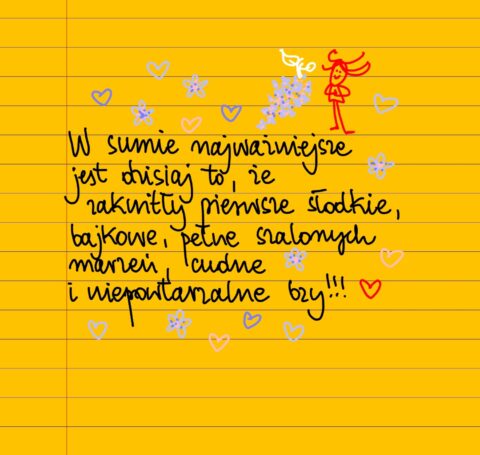 W sumie najważniejsze
jest dzisiaj to, że
zakwitły pierwsze słodkie,
bajkowe, pełne szalonych
marzeń, cudne
i niepowtarzalne bzy!!!